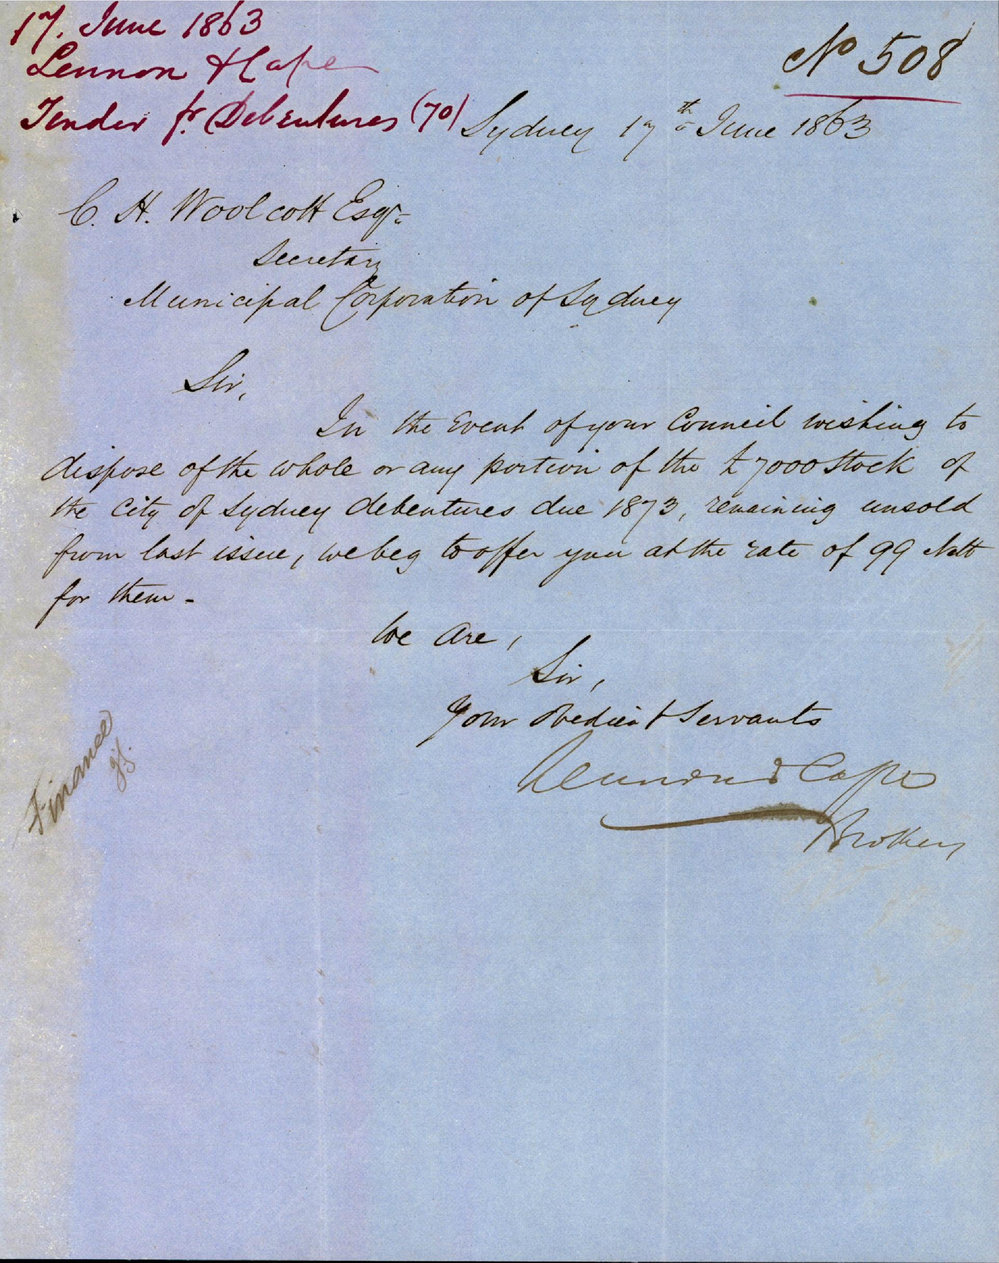 17. June 1863
Lennon & Cape
Tender fr. Debentures (70)
No 508
Sydney 17th June 1863
C. H. Woolcott Esqr.
Secretary
Municipal Corporation of Sydney
Sir,
In the Event of your Council wishing to
dispose of the whole or any portion of the £7000 Stock of
the City of Sydney debentures due 1873, remaining unsold
from last issue, we beg to offer you at the rate of 99 Nett
for them -
We Are,
Sir,
Your Obedient Servants
Lennon & Cape
Brokers
Finance